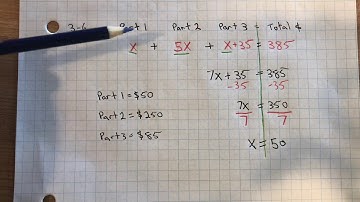 3-6 Part 1 Part 2 Part 3 = Total $
x + 5x + x+35 = 385
7x+35 = 385
-35 -35
Part 1 = $50
7x = 350
7 7
Part 2 = $250
Part 3 = $85
x = 50